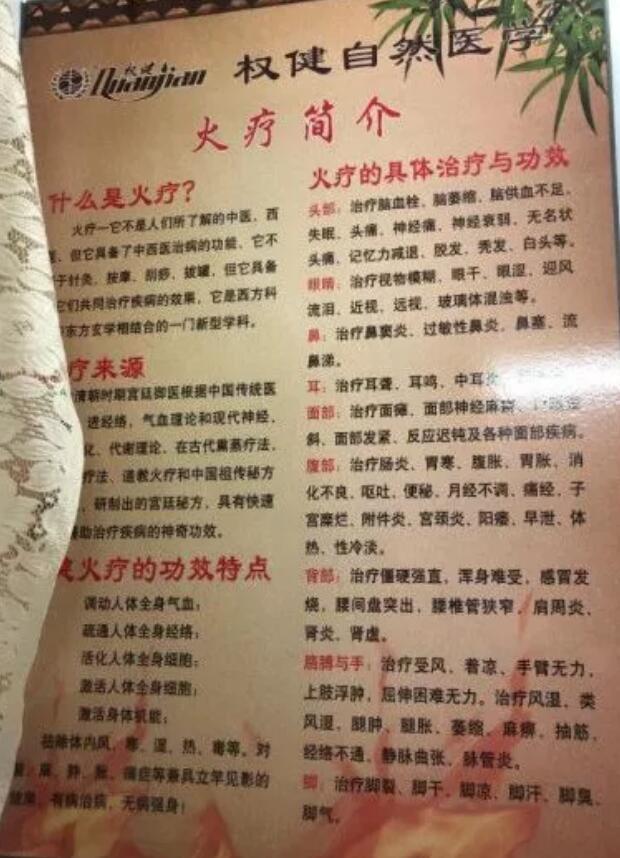 权健
Quanjian
权健自然医学
火疗简介
什么是火疗？
火疗—它不是人们所了解的中医、西
，但它具备了中西医治病的功能、它不
于针灸、按摩、刮痧、拔罐，但它具备
它们共同治疗疾病的效果，它是西方科
东方玄学相结合的一门新型学科。
疗来源
清朝时期宫廷御医根据中国传统医
进经络，气血理论和现代神经、
化、代谢理论，在古代熏蒸疗法、
疗法、道教火疗和中国祖传秘方
、研制出的宫廷秘方，具有快速
助治疗疾病的神奇功效。
火疗的功效特点
调动人体全身气血；
疏通人体全身经络；
活化人体全身细胞；
激活人体全身细胞；
激活身体机能；
祛除体内风、寒、湿、热、毒等。对
、麻、肿、胀、痛症等兼具立竿见影的
效果，有病治病，无病强身！
火疗的具体治疗与功效
头部：治疗脑血栓、脑萎缩、脑供血不足、
失眠、头痛、神经痛、神经衰弱、无名状
头痛、记忆力减退、脱发、秃发、白头等。
眼睛：治疗视物模糊、眼干、眼涩、迎风
流泪、近视、远视、玻璃体混浊等。
鼻：治疗鼻窦炎、过敏性鼻炎、鼻塞、流
鼻涕。
耳：治疗耳聋、耳鸣、中耳炎
面部：治疗面瘫、面部神经麻痹、
斜、面部发紧、反应迟钝及各种面部疾病。
腹部：治疗肠炎、胃寒、腹胀、胃胀、消
化不良、呕吐、便秘、月经不调、痛经、子
宫糜烂、附件炎、宫颈炎、阳痿、早泄、体
热、性冷淡。
背部：治疗僵硬强直，浑身难受，感冒发
烧，腰间盘突出、腰椎管狭窄、肩周炎、
肾炎、肾虚。
胳膊与手：治疗受风、着凉、手臂无力，
上肢浮肿，屈伸困难无力。治疗风湿、类
风湿、腿肿、腿胀、萎缩、麻痹、抽筋、
经络不通、静脉曲张、脉管炎。
脚：治疗脚裂、脚干、脚凉、脚汗、脚臭、
脚气。